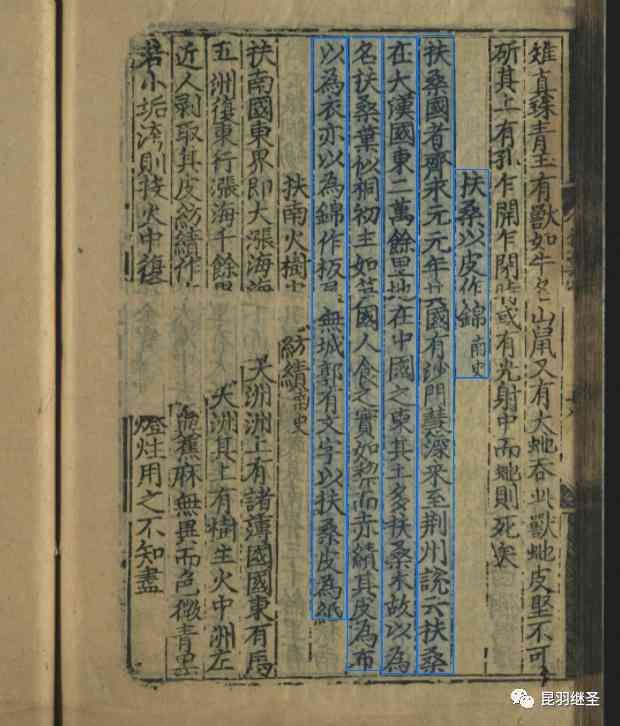 雉真珠青玉有獸如牛名山鼠又有大虵吞此獸虵皮堅不可
斫其上有孔乍開乍閉時或有光射中而虵則死
扶桑以皮作錦 南史
扶桑國者齊永元元年其國有沙門慧深來至荆州說云扶桑
在大漢國東二萬餘里地在中國之東其土多扶桑木故以為
名扶桑葉似桐初生如笋國人食之實如棃而赤績其皮為布
以為衣亦以為錦作板屋無城郭有文字以扶桑皮為紙
扶南火樹 紡績 南史
扶南國東界即大漲海海 大洲洲上有諸薄國國東有馬
五洲復東行漲海千餘里 大洲其上有樹生火中洲左
近人剥取其皮紡績作 蕉麻無異而色微青黑
若小垢洿則投火中復 燈炷用之不知盡
昆羽继圣